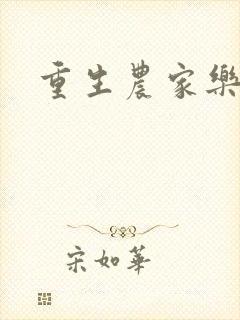 重生農家樂
宋如華